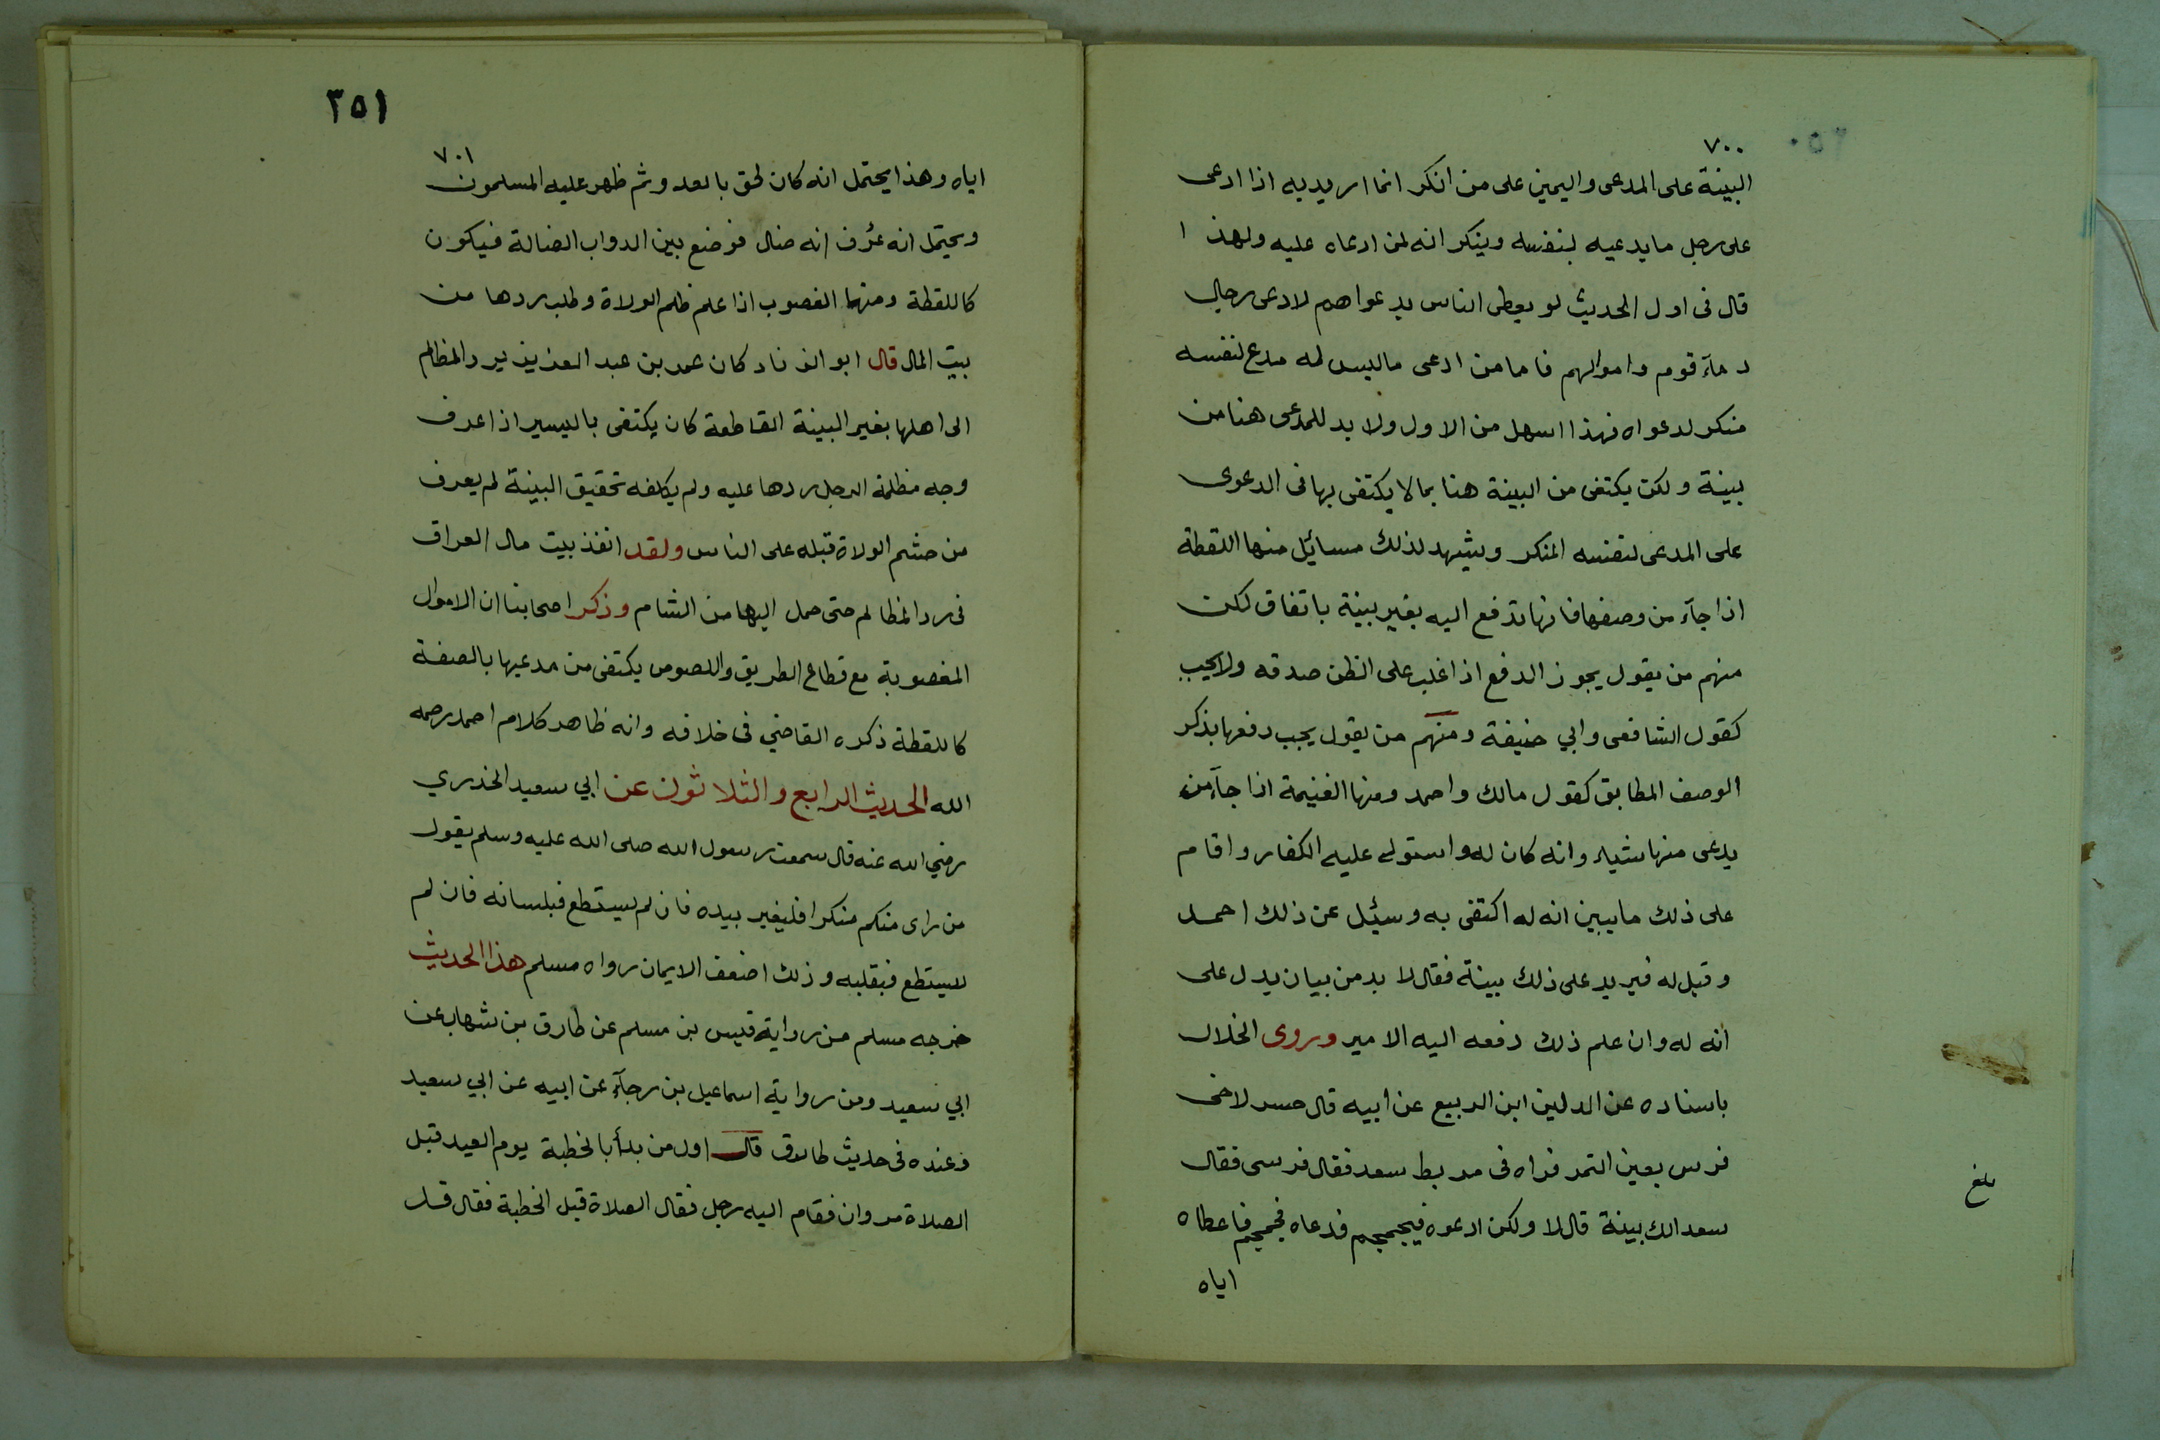 ٧٠٠
البينة على المدعى واليمين على من انكر انما اريد به اذا ادعى
على رجل ما يدعيه لنفسه وينكر انه لمن ادعاه عليه ولهذا
قال فى اول الحديث لو يعطى الناس بدعواهم لادعى رجال
دمآء قوم واموالهم فاما من ادعى ما ليس له مدع لنفسه
منكر لدعواه فهذا اسهل من الاول ولا بد للمدعى هنا من
بينة ولكن يكتفى من البينة هنا بما لا يكتفى بها فى الدعوى
على المدعى لنفسه المنكر ويشهد لذلك مسائل منها اللقطة
اذا جآء من وصفها فانها تدفع اليه بغير بينة باتفاق لكن
منهم من يقول يجوز الدفع اذا غلب على الظن صدقه ولا يجب
كقول الشافعى وابي حنيفة ومنهم من يقول يجب دفعها بذكر
الوصف المطابق كقول مالك واحمد ومنها الغنيمة اذا جآء من
يدعى منها شياء وانه كان له واستولى عليه الكفار واقام
على ذلك ما يبين انه له اكتفى به وسئل عن ذلك احمد
وقيل له فيريد على ذلك بينة فقال لا بد من بيان يدل على
انه له وان علم ذلك دفعه اليه الامير وروى الخلال
باسناده عن الدلين ابن الربيع عن ابيه قال حسر لاخى
فرس بعين التمر فراه فى مربط سعد فقال فرسى فقال
سعد الك بينة قال لا ولكن ادعوه فيحمحم فدعاه فحمحم فاعطاه
اياه
بلغ
٣٥١
٧٠١
اياه وهذا يحتمل انه كان لحق بالعدو ثم ظهر عليه المسلمون
ويحتمل انه عرف انه ضال فوضع بين الدواب الضالة فيكون
كاللقطة ومنها الغصوب اذا علم ظلم الولاة وطلب ردها من
بيت المال قال ابو الزناد كان عمر بن عبد العزيز يرد المظالم
الى اهلها بغير البينة القاطعة كان يكتفى باليسير اذا عرف
وجه مظلمة الرجل ردها عليه ولم يكلفه تحقيق البينة لم يعرف
من حشم الولاة قبله على الناس ولقد انفذ بيت مال العراق
فى رد المظالم حتى حمل اليها من الشام وذكر اصحابنا ان الاموال
المغصوبة مع قطاع الطريق واللصوص يكتفى من مدعيها بالصفة
كاللقطة ذكره القاضي فى خلافه وانه ظاهر كلام احمد رحمه
الله الحديث الرابع والثلاثون عن ابي سعيد الخذري
رضي الله عنه قال سمعت رسول الله صلى الله عليه وسلم يقول
من راى منكم منكرا فليغير بيده فان لم يستطع فبلسانه فان لم
يستطع فبقلبه وذلك اضعف الايمان رواه مسلم هذا الحديث
خرجه مسلم من رواية قيس بن مسلم عن طارق بن شهاب عن
ابي سعيد ومن رواية اسماعيل بن رجآء عن ابيه عن ابي سعيد
وعنده فى حديث طارق قال اول من بدأ بالخطبة يوم العيد قبل
الصلاة مروان فقام اليه رجل فقال الصلاة قبل الخطبة فقال قد